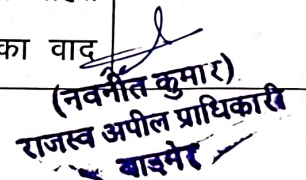 का वाद
(नवनीत कुमार)
राजस्व अपील प्राधिकारी
बाड़मेर